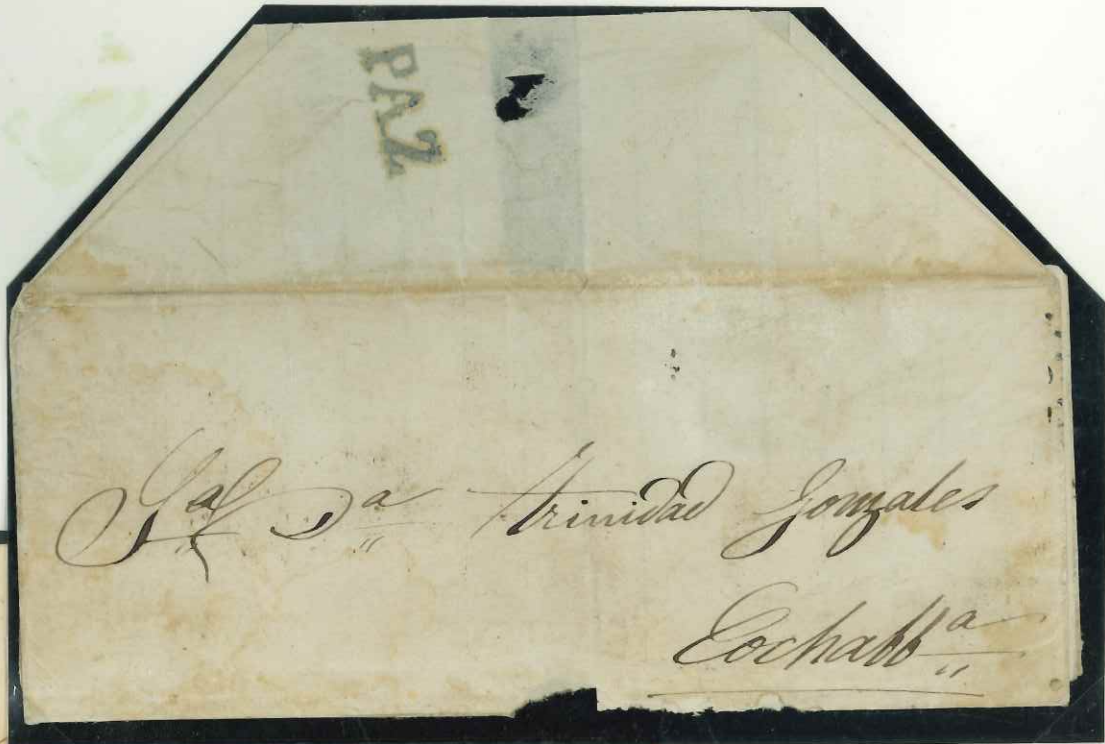 PAZ
Sa Da Trinidad Gonzales
Cochabba